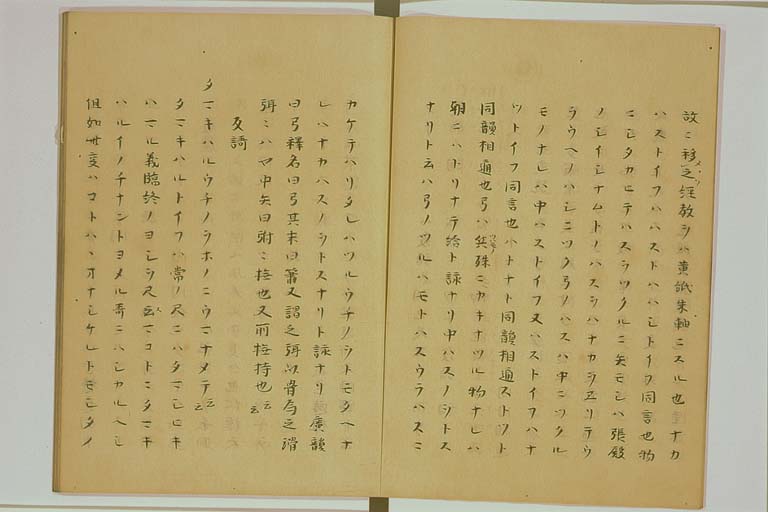 故ニ移之経教ヲハ黄紙朱軸ニスル也 ナカ
ハストイフハハストハハシトイフ同言也物
ニシタカヒテハスヲツクルニ矢モシハ張殿
ノシイシナムトノハスシハナカラヱリテウ
ラウヘノハシニツク弓ノハスハ中ニツクル
モノナレハ中ハストイフ又ハストイフハナ
ツトイフ同言也ハトナト同韻相通ストツト
同韻相通也弓ハ殊ニカキナツル物ナレハ
朝ニハトリナテ給ト詠ナリ中ハスノシトス
ナリト云ハ弓ノツルハモトハスウラハスニ
カケテハリタレハツルウチノヲトモタヘナ
レハナカハスノヲトスナリト詠ナリ 廣韻
曰弓釋名曰弓其末曰簫又謂之弭以骨為之滑
弭ニハヤ中矢曰弣ニ撫也又所撫持也云云
反謌
タマキハルウチノヲホノニウマナメテ云云
タマキハルトイフハ常ノ尺ニハタマシヒキ
ハマル義臨終ノヨシヲ尺云マコトニタマキ
ハルイノチナントヨメル哥ニハシカルヘシ
但如此変ハコトハハオナシケレトモシタノ